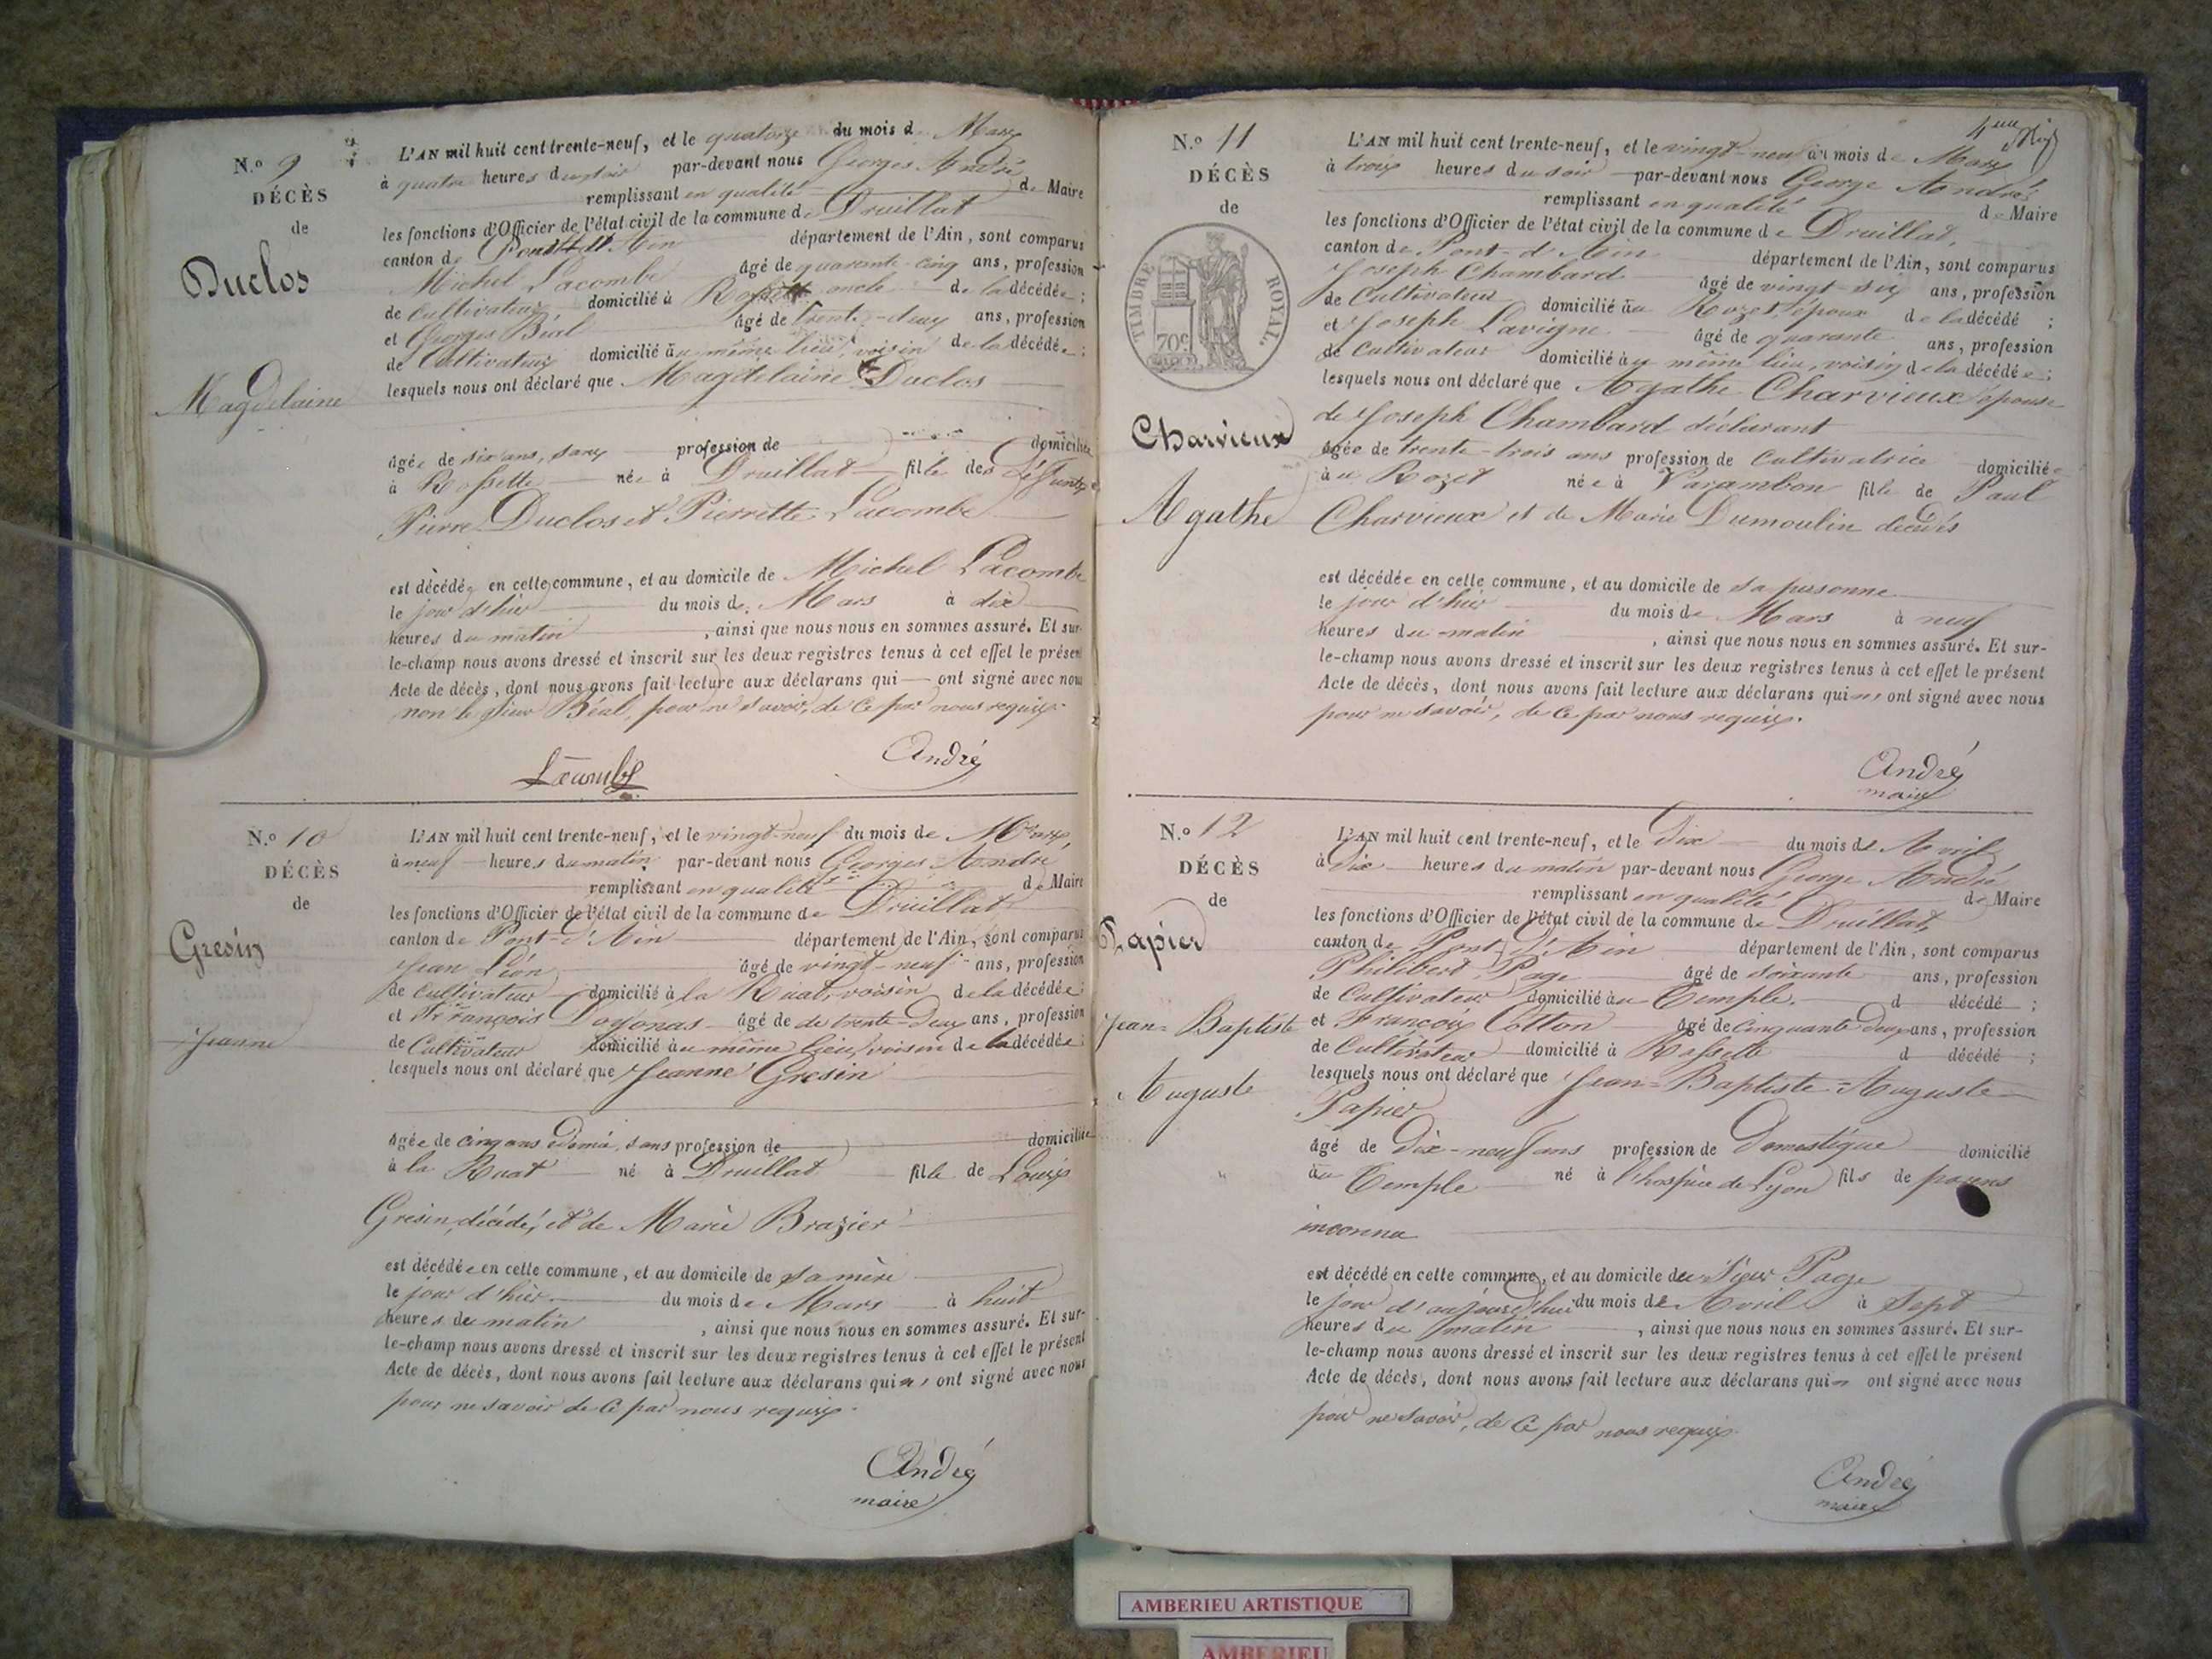 N.o 9
DÉCÈS
de
Duclos
Magdelaine
L'AN mil huit cent trente-neuf, et le quatorze du mois d Mars
à quatre heures du soir par-devant nous Georges André
remplissant en qualité de Maire
les fonctions d'Officier de l'état civil de la commune de Druillat
canton de Pont d'Ain département de l'Ain, sont comparus
Michel Lacombe âgé de quarante-cinq ans, profession
de cultivateur domicilié à Rossette oncle de la décédée;
et Georges Béal âgé de trente-deux ans, profession
de Cultivateur domicilié au même lieu, voisin de la décédée;
lesquels nous ont déclaré que Magdelaine Duclos
âgée de six ans, sans profession de domiciliée
à Rossette née à Druillat fille des défunts
Pierre Duclos et Pierrette Lacombe
est décédée en cette commune, et au domicile de Michel Lacombe
le jour d'hier du mois de Mars à dix
heures du matin, ainsi que nous nous en sommes assuré. Et sur-
le-champ nous avons dressé et inscrit sur les deux registres tenus à cet effet le présent
Acte de décès, dont nous avons fait lecture aux déclarans qui ont signé avec nous
non le sieur Béal, pour ne savoir, de ce par nous requis.
Lacombe André
N.o 10
DÉCÈS
de
Gresin
Jeanne
L'AN mil huit cent trente-neuf, et le vingt-neuf du mois de Mars,
à neuf heures du matin par-devant nous Georges André
remplissant en qualité de Maire
les fonctions d'Officier de l'état civil de la commune de Druillat
canton de Pont-d'Ain département de l'Ain, sont comparus
Jean Léon âgé de vingt-neuf ans, profession
de cultivateur domicilié à la Ruat, voisin de la décédée;
et François Doyonas âgé de de trente-deux ans, profession
de Cultivateur domicilié au même lieu, voisin de la décédée;
lesquels nous ont déclaré que Jeanne Gresin
âgée de cinq ans et demi, sans profession de domiciliée
à la Ruat né à Druillat fille de Louis
Gresin, décédé, et de Marie Brazier
est décédée en cette commune, et au domicile de sa mère
le jour d'hier du mois de Mars à huit
heures du matin, ainsi que nous nous en sommes assuré. Et sur-
le-champ nous avons dressé et inscrit sur les deux registres tenus à cet effet le présent
Acte de décès, dont nous avons fait lecture aux déclarans qui n'ont signé avec nous
pour ne savoir de ce par nous requis.
André
maire
4me
N.o 11
DÉCÈS
de
TIMBRE ROYAL.
70c
Charvieux
Agathe
L'AN mil huit cent trente-neuf, et le vingt-neuf du mois de Mars
à trois heures du soir par-devant nous George André
remplissant en qualité de Maire
les fonctions d'Officier de l'état civil de la commune de Druillat,
canton de Pont-d'Ain département de l'Ain, sont comparus
Joseph Chambard âgé de vingt-six ans, profession
de Cultivateur domicilié au Rozet, époux de la décédé;
et Joseph Lavigne âgé de quarante ans, profession
de Cultivateur domicilié au même lieu, voisin de la décédée;
lesquels nous ont déclaré que Agathe Charvieux épouse
de Joseph Chambard déclarant
âgée de trente-trois ans profession de Cultivatrice domiciliée
au Rozet née à Varambon fille de Paul
Charvieux et de Marie Dumoulin décédés
est décédée en cette commune, et au domicile de sa personne
le jour d'hier du mois de Mars à neuf
heures du matin, ainsi que nous nous en sommes assuré. Et sur-
le-champ nous avons dressé et inscrit sur les deux registres tenus à cet effet le présent
Acte de décès, dont nous avons fait lecture aux déclarans qui n'ont signé avec nous
pour ne savoir, de ce par nous requis.
André
maire
N.o 12
DÉCÈS
de
Papier
Jean-Baptiste
Auguste
L'AN mil huit cent trente-neuf, et le Dix du mois de Avril
à Dix heures du matin par-devant nous George André
remplissant en qualité de Maire
les fonctions d'Officier de l'état civil de la commune de Druillat,
canton de Pont-d'Ain département de l'Ain, sont comparus
Philibert Page âgé de soixante ans, profession
de Cultivateur domicilié au Temple. d décédé;
et François Cotton âgé de cinquante deux ans, profession
de Cultivateur domicilié à Rossette d décédé;
lesquels nous ont déclaré que Jean-Baptiste-Auguste
Papier
âgé de Dix-neuf ans profession de Domestique domicilié
au Temple né à l'hospice de Lyon fils de parens
inconnu
est décédé en cette commune, et au domicile du Sieur Page
le jour d'aujourd'hui du mois de Avril à Sept
heures du matin, ainsi que nous nous en sommes assuré. Et sur-
le-champ nous avons dressé et inscrit sur les deux registres tenus à cet effet le présent
Acte de décès, dont nous avons fait lecture aux déclarans qui n'ont signé avec nous
pour ne savoir, de ce par nous requis.
André
maire
AMBERIEU ARTISTIQUE
AMBERIEU